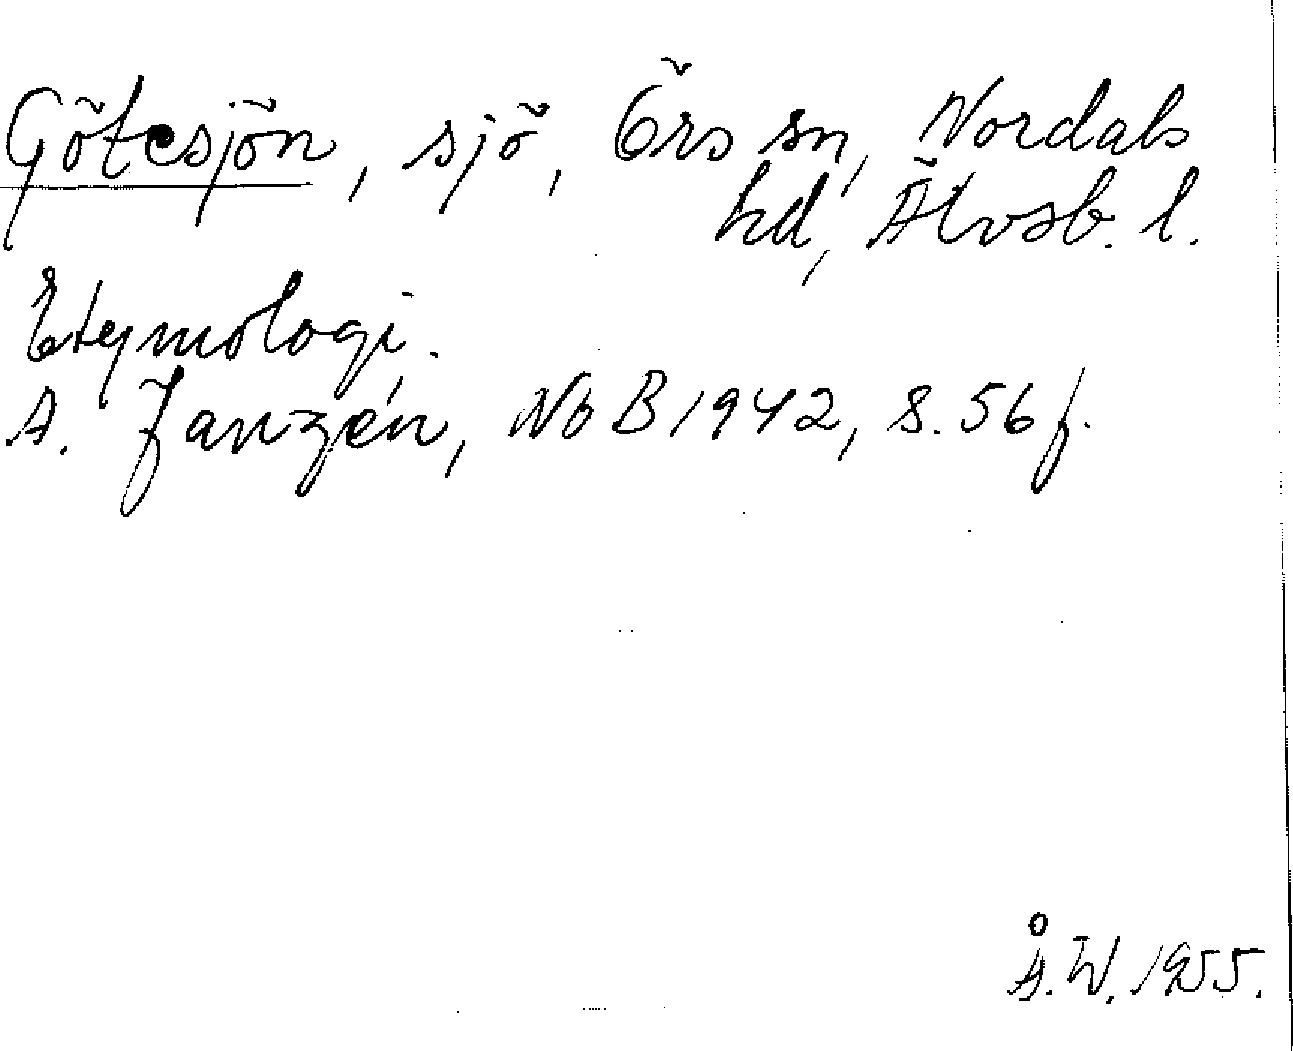 Götesjön, sjö, Örs sn, Nordals
hd, Älvsb. l.
Etymologi.
A. Janzén, NoB 1942, s. 56 f.
Å. W. 1955.